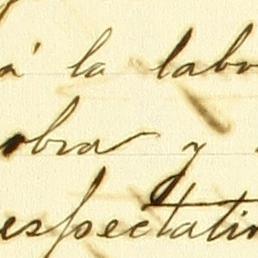 á la labo
obra y
espectati